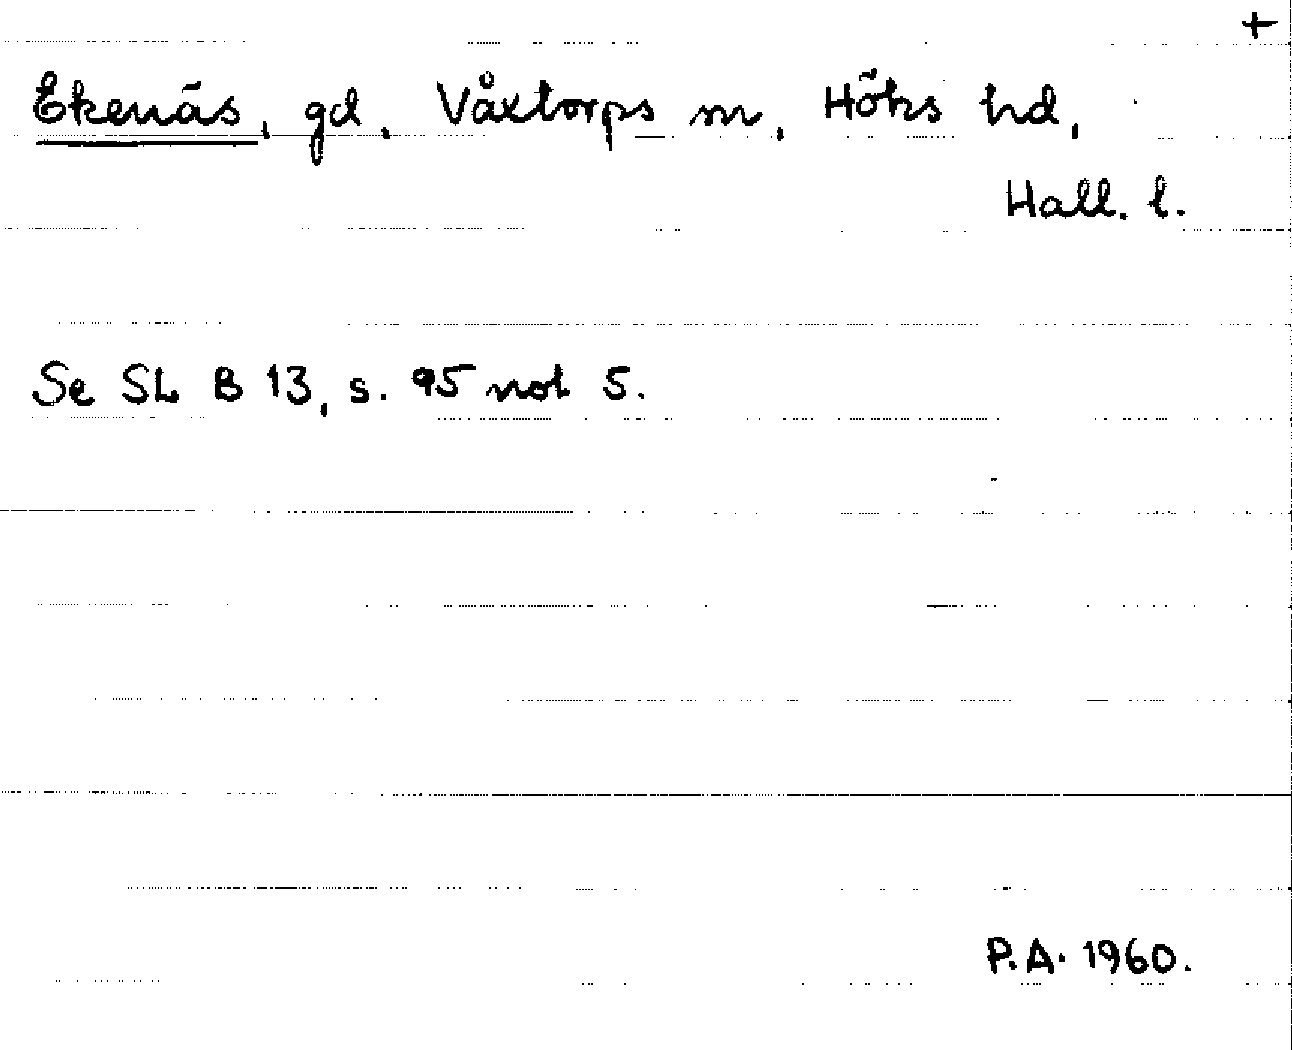 +
Ekenäs, gd, Våxtorps sn, Höks hd,
Hall. l.
Se SL B 13, s. 95 not 5.
P.A. 1960.